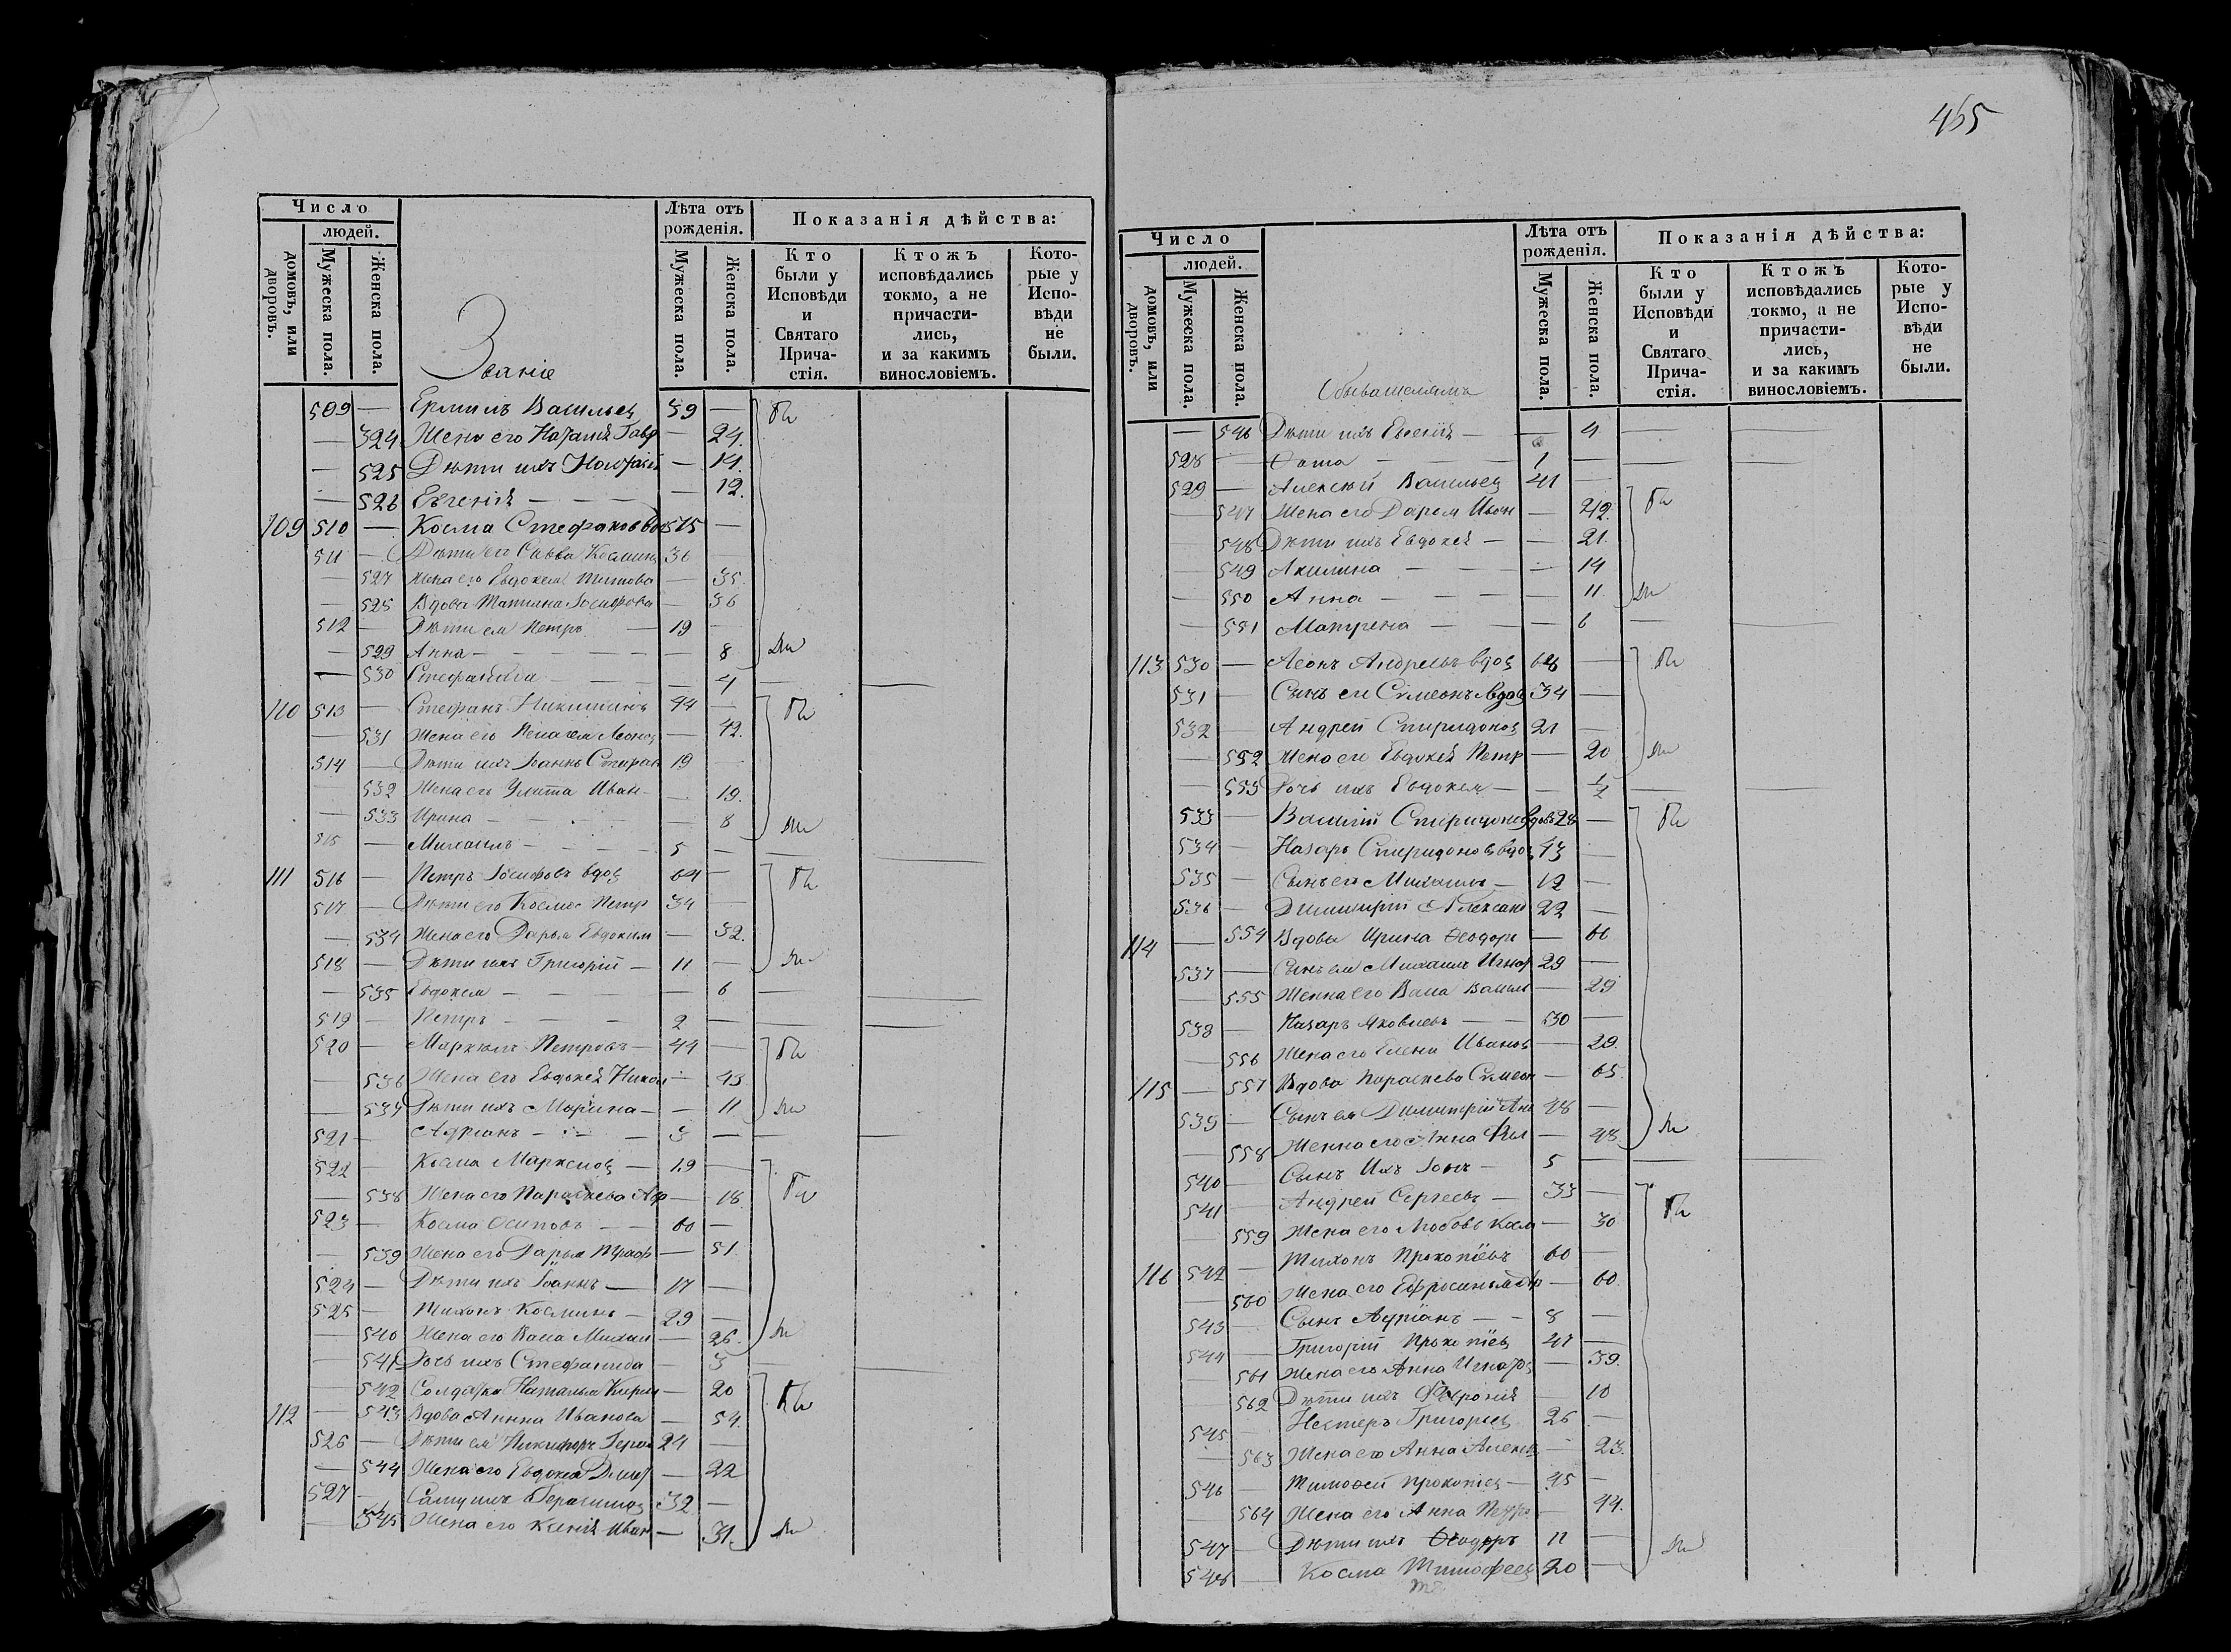 465
Число
людей.
домовъ, или дворовъ.
Мужеска пола.
Женска пола.
Званіе
Лѣта отъ рожденія.
Мужеска пола.
Женска пола.
Показанія дѣйства:
Кто были у Исповѣди и Святаго Прича-стія.
Ктожъ исповѣдались токмо, а не причасти-лись, и за какимъ винословіемъ.
Кото-рые у Испо-вѣди не были.
509 — Ермилъ Васильев 39 —
— 524 Жена его — 24.
— 525 Дѣти ихъ — 14.
— 526 Евгенія — — 12.
109 510 — Косма Стефановъ 515 —
511 — Дѣти его Савва Космин 36
— 527 Жена его Евдокея Титова — 35.
— 528 Вдова Татьяна Іосифова — 36
512 — Дѣти ея Петръ — 19 —
— 529 Анна — — 8
— 530 Стефанида — — 4
110 513 — Стефанъ Никитинъ 44 —
— 531 Жена его Пелагея Леонов — 42.
514 — Дѣти ихъ Іоаннъ Стефан 19 —
— 532 Жена его Улита Иван — 19.
— 533 Ирина — — 8
515 — Михаилъ — 5 —
111 516 — Петръ Іосифовъ вдов 64 —
517 — Дѣти его Косма Петр 34 —
— 534 Жена его Дарья Евдоким — 32.
518 — Дѣти ихъ Григорій — 11 —
— 535 Евдокея — — 6
519 — Петръ — 2 —
520 — Маркелъ Петровъ — 44 —
— 536 Жена его Евдокея Никол — 43
— 537 Дѣти ихъ Марина — — 11
521 — Адріанъ — 3 —
522 — Косма Маркелов — 19 —
— 538 Жена его Параскева — 18
523 — Косма Осиповъ — 60 —
— 539 Жена его Дарья — 51.
524 — Дѣти ихъ Іоаннъ — 17 —
525 — Тихонъ Косминъ — 29 —
— 540 Жена его Васа Михаи — 26.
— 541 Дочь ихъ Стефанида — 3
— 542 Солдатка Наталья Кирил — 20
112 — 543 Вдова Анна Иванова — 54.
526 — Дѣти ея Никифоръ Герас 24 —
— 544 Жена его Евдокея — 22
527 — Самуилъ Герасимов 32 —
— 545 Жена его Ксенія Иван — 31.
Число
людей.
домовъ, или дворовъ.
Мужеска пола.
Женска пола.
Обывателямъ
Лѣта отъ рожденія.
Мужеска пола.
Женска пола.
Показанія дѣйства:
Кто были у Исповѣди и Святаго Прича-стія.
Ктожъ исповѣдались токмо, а не причасти-лись, и за какимъ винословіемъ.
Кото-рые у Испо-вѣди не были.
— 546 Дѣти ихъ Евгенія — — 4
528 — Фома — 1 —
529 — Алексѣй Васильев 41 —
— 547 Жена его Дарья Иван — 42.
— 548 Дѣти ихъ Евдокея — — 21.
— 549 Акилина — — 14
— 550 Анна — — 11
— 551 Матрена — — 6
113 530 — Леонъ Андреевъ вдов 68 —
531 — Сынъ его Симеонъ вдов 34 —
532 — Андрей Спиридонов 21 —
— 552 Жена его Евдокея Петр — 20
— 553 Дочь ихъ Евдокея — — 1/2
533 — Василій Спиридонов вдовъ 28 —
534 — Назаръ Спиридонов вдов 43 —
535 — Сынъ его Михаилъ — 12 —
536 — Димитрій Александ 22 —
114 — 554 Вдова Ирина Ѳеодор — 66
537 — Сынъ ея Михаилъ Игнат 29 —
— 555 Жена его Васа Васил — 29
538 — Назаръ Яковлевъ — 30 —
— 556 Жена его Елена Иванов — 29.
115 — 557 Вдова Параскева Симеон — 65.
539 — Сынъ ея Димитрій 48 —
— 558 Женна его Анна Фил — 48
540 — Сынъ Ихъ — 5 —
541 — Андрей Сергеевъ — 33 —
— 559 Жена его Любовь Косм — 30
116 542 — Тихонъ Прокопіевъ 60 —
— 560 Жена его Ефросинья — 60.
543 — Сынъ Адріанъ — 8 —
544 — Григорій Прокопіев 41 —
— 561 Жена его Анна Игнатов — 39.
562 Дѣти ихъ Феѵронія — 10
545 — Нестеръ Григорьев 26 —
— 563 Жена его Анна Алексѣ — 23.
546 — Тимофей Прокопіев — 45 —
— 564 Жена его Анна Петро — 44.
547 — Дѣти ихъ Ѳеодоръ 11 —
548 — Косма Тимофеев 20 —